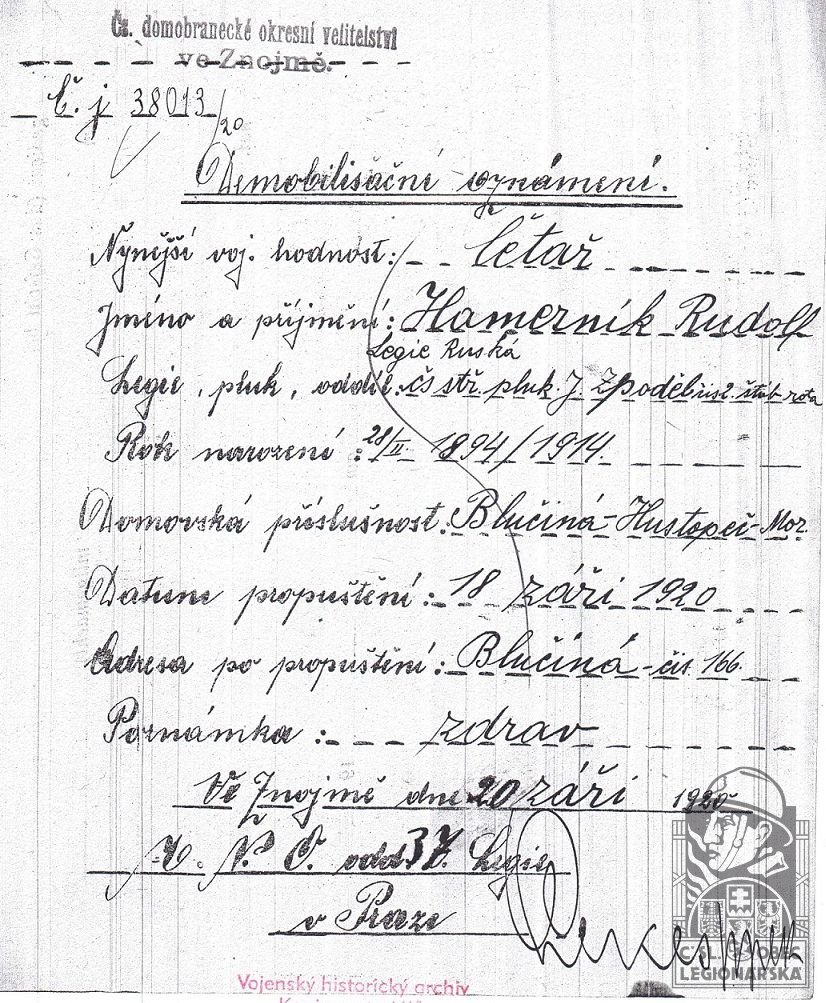 Čs. domobranecké okresní velitelství
ve Znojmě.
Č. j 38013/20
Demobilisační oznámení.
Nynější voj. hodnost: četař
Jméno a příjmení: Hamerník Rudolf
Legie Ruská
Legie, pluk, oddíl: čs stř. pluk. J. z Poděb. štáb rota
Rok narození: 28/II. 1894/1914.
Domovská příslušnost: Blučiná-Hustopeč-Mor.
Datum propuštění: 18 září 1920
Adresa po propuštění: Blučiná - čís 166.
Poznámka: zdrav
Ve Znojmě dne 20 září 1920
M. N. O. odd 37. Legie
v Praze
ČSL. OBEC
LEGIONÁŘSKÁ
Vojenský historický archiv